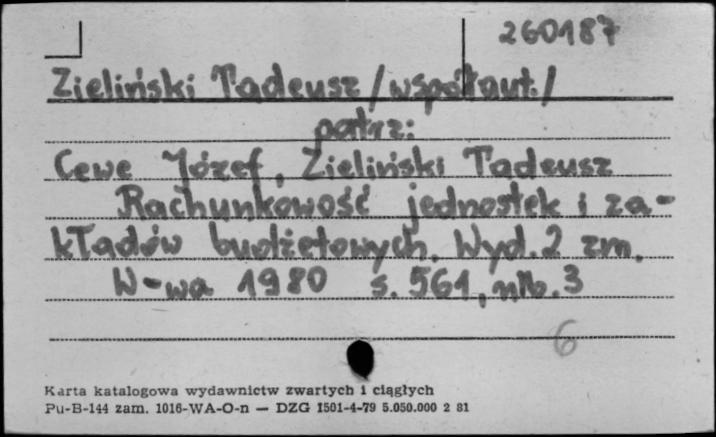 260187
Zieliński Tadeusz /współaut./
patrz:
Cewe Józef, Zieliński Tadeusz
Rachunkowość jednostek i za-
kładów budżetowych. Wyd. 2 zm.
W-wa 1980 s. 561, nlb. 3
6
Karta katalogowa wydawnictw zwartych i ciągłych
Pu-B-144 zam. 1016-WA-O-n — DZG 1501-4-79 5.050.000 2 81